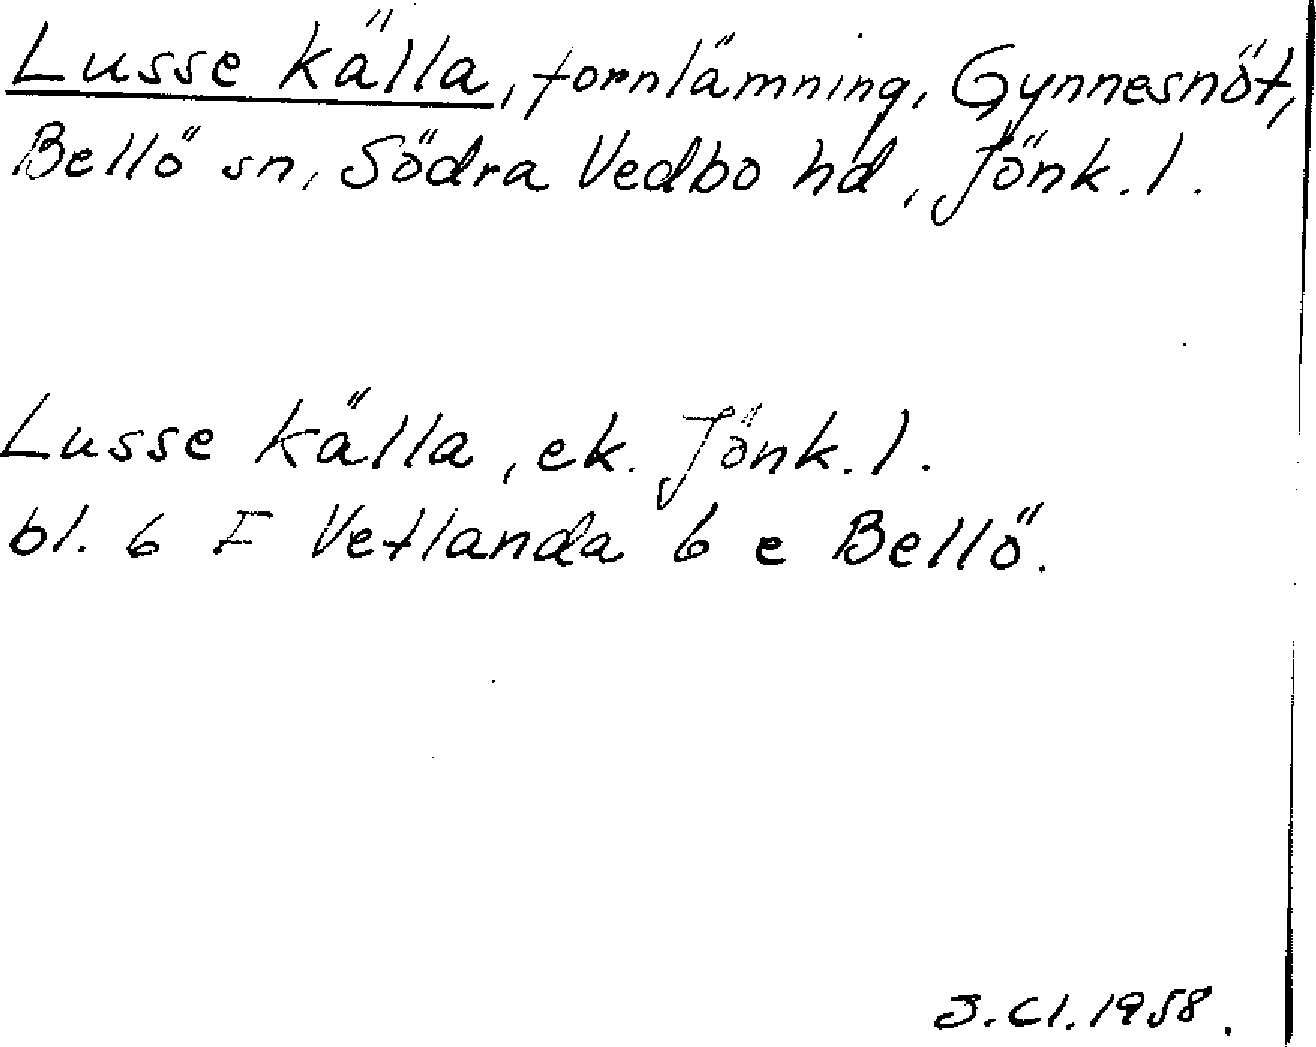 Lusse källa, fornlämning, Gynnesnöt,
Bellö sn, Södra Vedbo hd, Jönk. l.
Lusse källa, ek. Jönk. l.
bl. 6 F Vetlanda 6 e Bellö.
J. Cl. 1958.